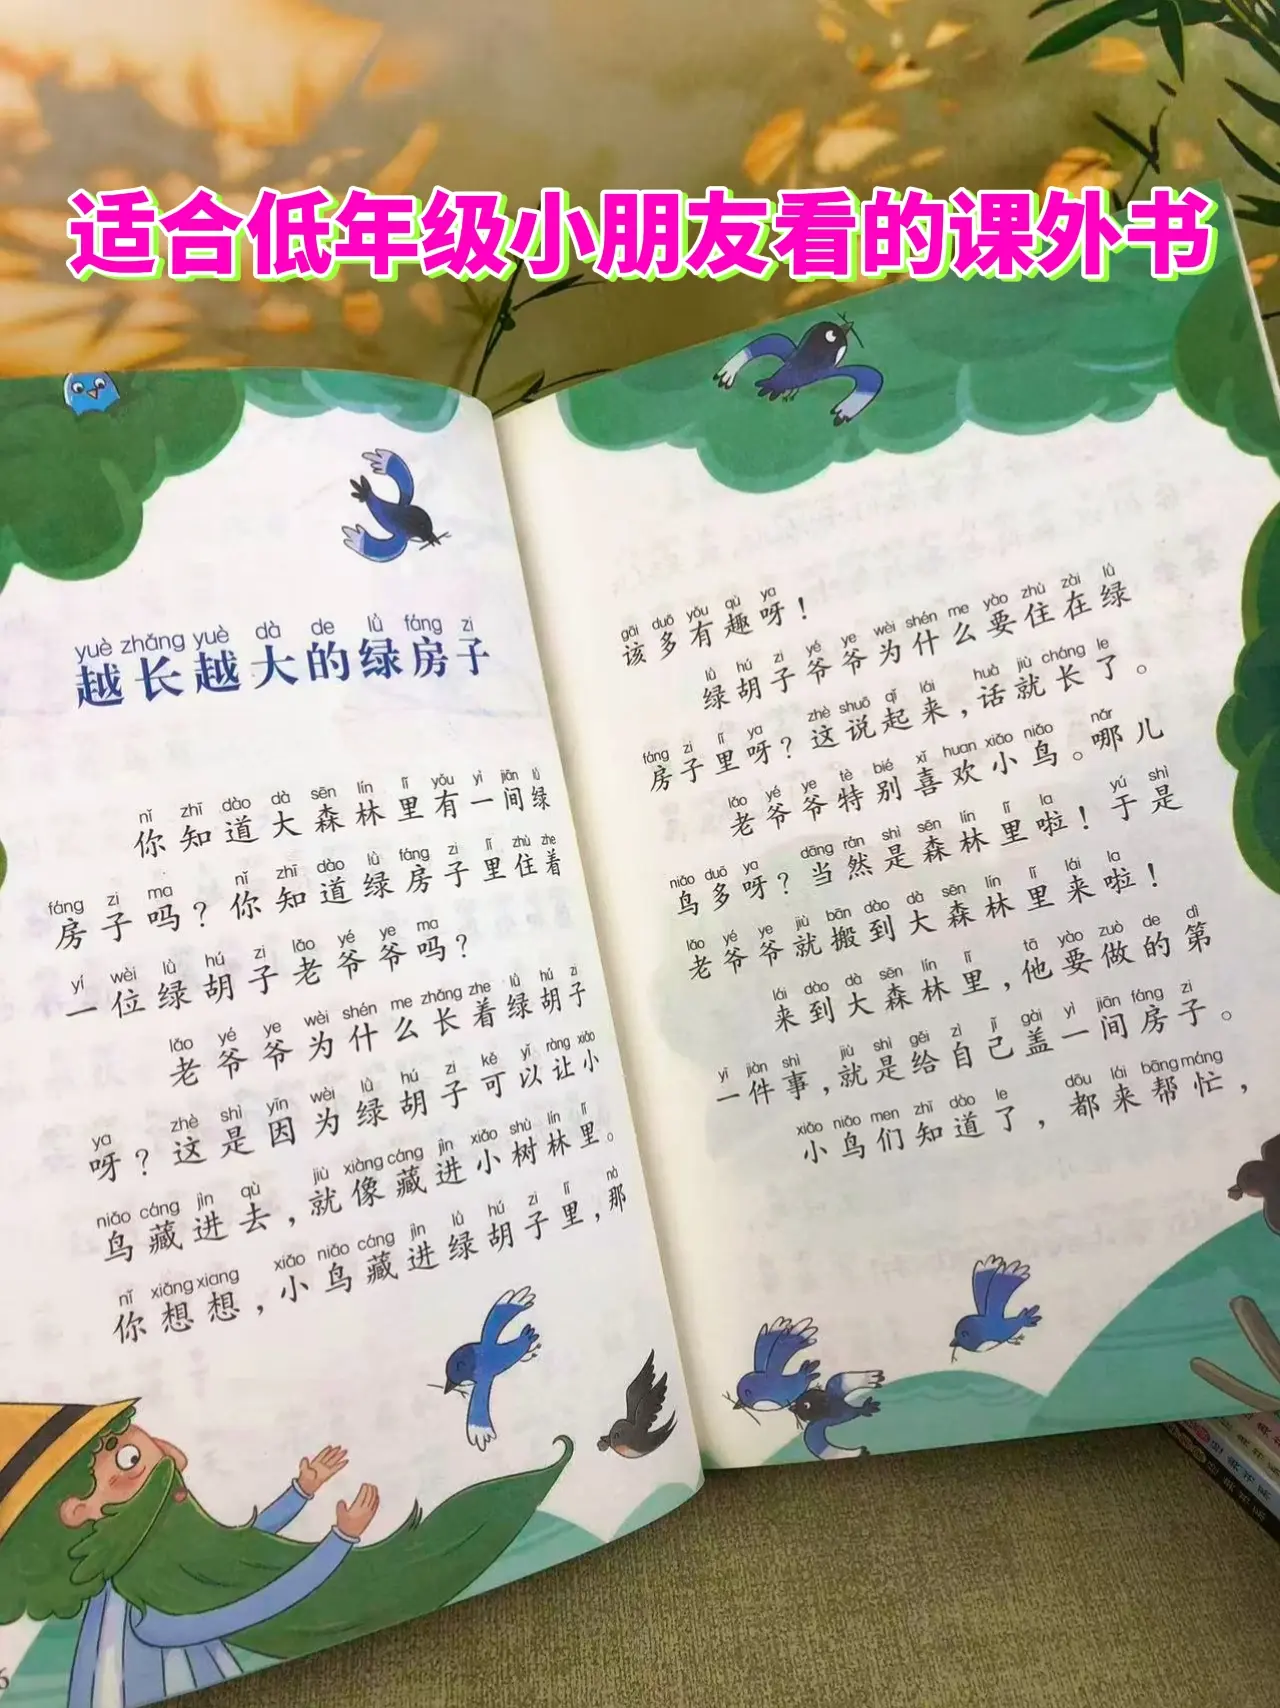 适合低年级小朋友看的课外书
yuè zhǎng yuè dà de lǜ fáng zi
越长越大的绿房子
nǐ zhī dào dà sēn lín lǐ yǒu yì jiān lǜ
你知道大森林里有一间绿
fáng zi ma nǐ zhī dào lǜ fáng zi lǐ zhù zhe
房子吗？你知道绿房子里住着
yí wèi lǜ hú zi lǎo yé ye ma
一位绿胡子老爷爷吗？
lǎo yé ye wèi shén me zhǎng zhe lǜ hú zi
老爷爷为什么长着绿胡子
ya zhè shì yīn wèi lǜ hú zi kě yǐ ràng xiǎo
呀？这是因为绿胡子可以让小
niǎo cáng jìn qù jiù xiàng cáng jìn xiǎo shù lín lǐ
鸟藏进去，就像藏进小树林里。
nǐ xiǎng xiang xiǎo niǎo cáng jìn lǜ hú zi lǐ nà
你想想，小鸟藏进绿胡子里，那
gāi duō yǒu qù ya
该多有趣呀！
lǜ hú zi yé ye wèi shén me yào zhù zài lǜ
绿胡子爷爷为什么要住在绿
fáng zi lǐ ya zhè shuō qǐ lái huà jiù cháng le
房子里呀？这说起来，话就长了。
lǎo yé ye tè bié xǐ huan xiǎo niǎo nǎr
老爷爷特别喜欢小鸟。哪儿
niǎo duō ya dāng rán shì sēn lín lǐ la yú shì
鸟多呀？当然是森林里啦！于是
lǎo yé ye jiù bān dào dà sēn lín lǐ lái la
老爷爷就搬到大森林里来啦！
lái dào dà sēn lín lǐ tā yào zuò de dì
来到大森林里，他要做的第
yī jiàn shì jiù shì gěi zì jǐ gài yì jiān fáng zi
一件事，就是给自己盖一间房子。
xiǎo niǎo men zhī dào le dōu lái bāng máng
小鸟们知道了，都来帮忙，
6